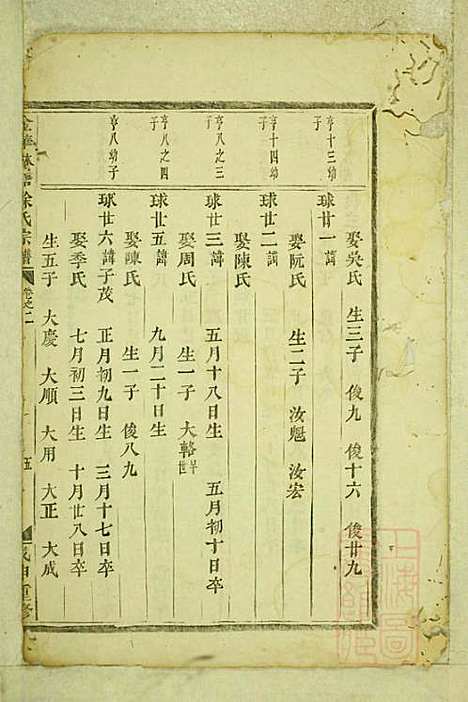 亨十三幼子
球廿一諱
娶吳氏 生三子 俊九 俊十六 俊廿九
亨十四幼子
球廿二諱
娶阮氏 生二子 汝魁 汝宏
亨八之三子
球廿三諱 五月十八日生 五月初十日卒
娶陳氏
娶周氏 生一子 大輅 早世
亨八之四子
球廿五諱 九月二十日生
娶陳氏 生一子 俊八九
亨八幼子
球廿六諱子茂 正月初九日生 三月十七日卒
娶季氏 七月初三日生 十月廿八日卒
生五子 大慶 大順 大用 大正 大成
徐氏宗譜 卷之二 五 戊申重修
上海圖